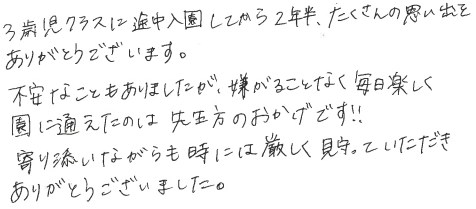 3歳児クラスに途中入園してから2年半、たくさんの思い出を
ありがとうございます。
不安なこともありましたが、嫌がることなく毎日楽しく
園に通えたのは先生方のおかげです!!
寄り添いながらも時には厳しく見守っていただき
ありがとうございました。